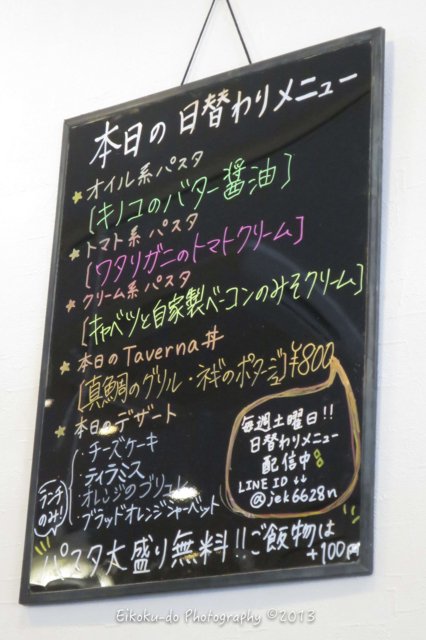 本日の日替わりメニュー
オイル系パスタ
[キノコのバター醤油]
トマト系パスタ
[ワタリガニのトマトクリーム]
クリーム系パスタ
[キャベツと自家製ベーコンのみそクリーム]
本日のTaverna丼
[真鯛のグリル・ネギのポタージュ]¥800
本日のデザート
チーズケーキ
ティラミス
オレンジのブリュレ
ブラッドオレンジシャーベット
ランチ
のみ!
毎週土曜日!!
日替わりメニュー
配信中
LINE ID ↓↓
@jek6628n
パスタ大盛り無料!!ご飯物は
+100円
Eikoku-do Photography ©2013